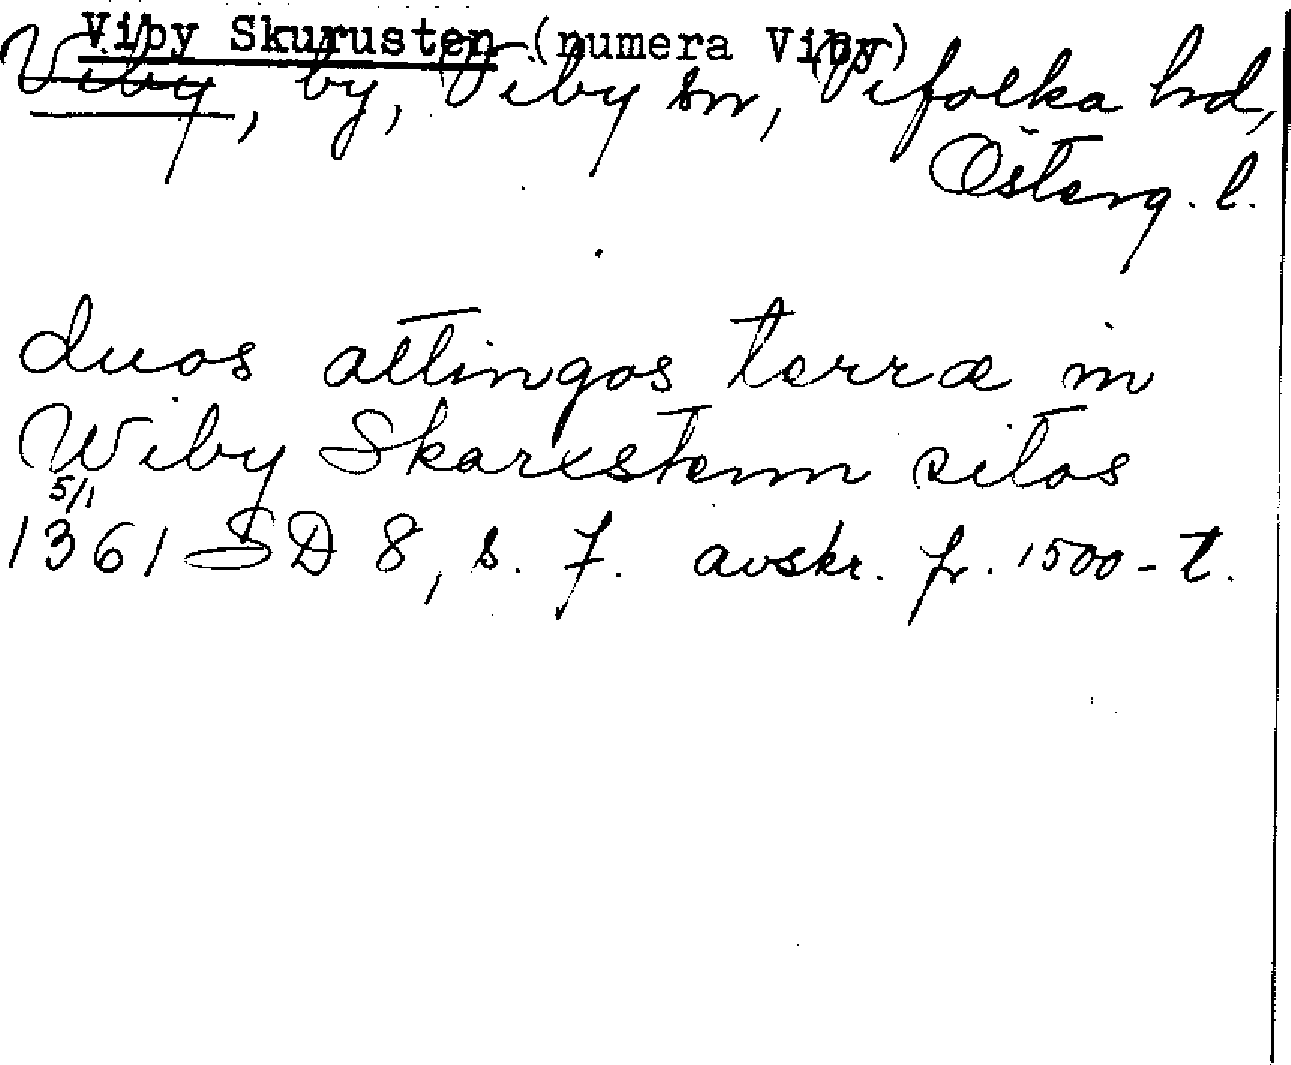 Viby Skurusten (numera Viby)
Viby, by, Viby sn, Vifolka hd,
Österg. l.
duos attingos terræ in
Wiby Skarestenn sitos
5/1
1361 SD 8, s. 7. avskr. fr. 1500-t.